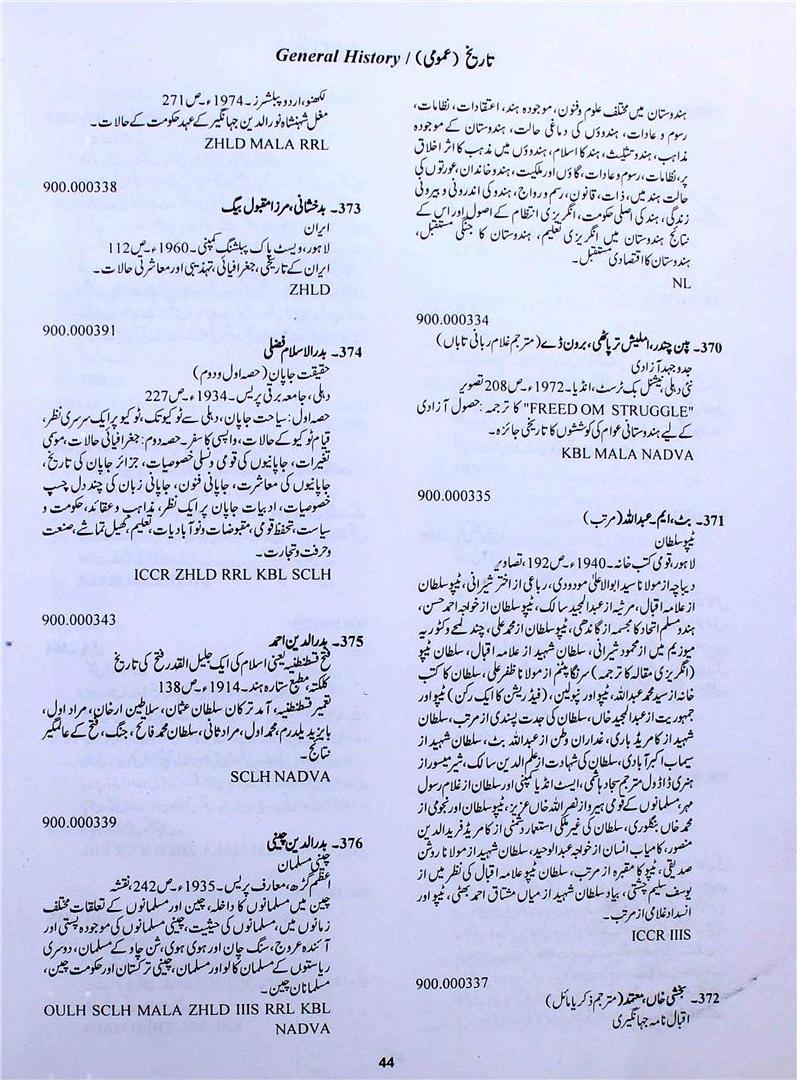 تاریخ (عمومی) / General History
ہندوستان میں مختلف علوم و فنون، موجودہ ہند، اعتقادات، نظامات،
رسوم و عادات، ہندوؤں کی دماغی حالت، ہندوستان کے موجودہ
مذاہب، ہندو تثلیث، ہند کا اسلام، ہندوؤں میں مذہب کا اثر اخلاق
پر، نظامات، رسوم و عادات، گاؤں اور ملکیت، ہندو خاندان، عورتوں کی
حالت ہند میں، ذات، قانون، رسم و رواج، ہندو کی اندرونی و بیرونی
زندگی، ہند کی اصلی حکومت، انگریزی انتظام کے اصول اور اس کے
نتائج ہندوستان میں انگریزی تعلیم، ہندوستان کا جنگی مستقبل،
ہندوستان کا اقتصادی مستقبل۔
NL
900.000334
370۔ بپن چندر، املیش ترپاٹھی، برون ڈے (مترجم غلام ربانی تاباں)
جدوجہد آزادی
نئی دہلی، نیشنل بک ٹرسٹ، انڈیا۔ 1972ء۔ ص208 تصویر
"FREED OM STRUGGLE" کا ترجمہ: حصول آزادی
کے لیے ہندوستانی عوام کی کوششوں کا تاریخی جائزہ۔
KBL MALA NADVA
900.000335
371۔ بٹ، ایم۔ عبداللہ (مرتب)
ٹیپو سلطان
لاہور، قومی کتب خانہ۔ 1940ء۔ ص192، تصاویر
دیباچہ از مولانا سید ابوالاعلیٰ مودودی، رباعی از اختر شیرانی، ٹیپو سلطان
از علامہ اقبال، مرثیہ از عبدالمجید سالک، ٹیپو سلطان از خواجہ احمد حسن،
ہندو مسلم اتحاد کا مجسمہ از گاندھی، ٹیپو سلطان از محمد علی، چند لمحے وکٹوریہ
میوزیم میں از محمود شیرانی، سلطان شہید از علامہ اقبال، سلطان ٹیپو
(انگریزی مقالہ کا ترجمہ) سرنگا پٹنم از مولانا ظفر علی، سلطان کا کتب
خانہ از سید محمد عبداللہ، ٹیپو اور نپولین، (فیڈریشن کا ایک رکن) ٹیپو اور
جمہوریت از عبدالمجید خاں، سلطان کی جدت پسندی از مرتب، سلطان
شہید از کامریڈ باری، غداران وطن از عبداللہ بٹ، سلطان شہید از
سیماب اکبرآبادی، سلطان کی شہادت از علم الدین سالک، شیر میسور از
ہنری ڈاڈول مترجم سجاد ہاشمی، ایسٹ انڈیا کمپنی اور سلطان از غلام رسول
مہر، مسلمانوں کے قومی ہیرو از نصر اللہ خاں عزیز، ٹیپو سلطان اور نجومی از
محمد خاں بنگلوری، سلطان کی غیر ملکی استعمار دشمنی از کامریڈ فرید الدین
منصور، کامیاب انسان از خواجہ عبدالوحید، سلطان شہید از مولانا روشن
صدیقی، ٹیپو کا مقبرہ از مرتب، سلطان ٹیپو علامہ اقبال کی نظر میں از
یوسف سلیم چشتی، بیاد سلطان شہید از میاں مشتاق احمد بھٹی، ٹیپو اور
انسداد غلامی از مرتب۔
ICCR IIIS
900.000337
372۔ بخشی خاں، معتمد (مترجم ذکریا مائل)
اقبال نامہ جہانگیری
لکھنؤ، اردو پبلشرز۔ 1974ء۔ ص271
مغل شہنشاہ نورالدین جہانگیر کے عہد حکومت کے حالات۔
ZHLD MALA RRL
900.000338
373۔ بدخشانی، مرزا مقبول بیگ
ایران
لاہور، ویسٹ پاک پبلشنگ کمپنی۔ 1960ء۔ ص112
ایران کے تاریخی، جغرافیائی، تہذیبی اور معاشرتی حالات۔
ZHLD
900.000391
374۔ بدرالاسلام فضلی
حقیقت جاپان (حصہ اول و دوم)
دہلی، جامعہ برقی پریس۔ 1934ء۔ ص227
حصہ اول: سیاحت جاپان، دہلی سے ٹوکیو تک، ٹوکیو پر ایک سرسری نظر،
قیام ٹوکیو کے حالات، واپسی کا سفر۔ حصہ دوم: جغرافیائی حالات، موسمی
تغیرات، جاپانیوں کی قومی و نسلی خصوصیات، جزائر جاپان کی تاریخ،
جاپانیوں کی معاشرت، جاپانی فنون، جاپانی زبان کی چند دل چسپ
خصوصیات، ادبیات جاپان پر ایک نظر، مذاہب و عقائد، حکومت و
سیاست، تحفظ قومی، مقبوضات و نوآبادیات، تعلیم، کھیل تماشے، صنعت
و حرفت و تجارت۔
ICCR ZHLD RRL KBL SCLH
900.000343
375۔ بدرالدین احمد
فتح قسطنطنیہ یعنی اسلام کی ایک جلیل القدر فتح کی تاریخ
کلکتہ، مطبع ستارہ ہند۔ 1914ء۔ ص138
تعمیر قسطنطنیہ، آمد ترکان سلطان عثمان، سلاطین ارخان، مراد اول،
بایزید یلدرم، محمد اول، مراد ثانی، سلطان محمد فاتح، جنگ، فتح کے عالمگیر
نتائج۔
SCLH NADVA
900.000339
376۔ بدرالدین چینی
چینی مسلمان
اعظم گڑھ، معارف پریس۔ 1935ء۔ ص242، نقشہ
چین میں مسلمانوں کا داخلہ، چین اور مسلمانوں کے تعلقات مختلف
زمانوں میں، مسلمانوں کی حیثیت، چینی مسلمانوں کی موجودہ پستی اور
آئندہ عروج، سنگ چان اور ہوی ہوی، شن چاو کے مسلمان، دوسری
ریاستوں کے مسلمان کالو اور مسلمان، چینی ترکستان اور حکومت چین،
مسلمانان چین۔
OULH SCLH MALA ZHLD IIIS RRL KBL
NADVA
44